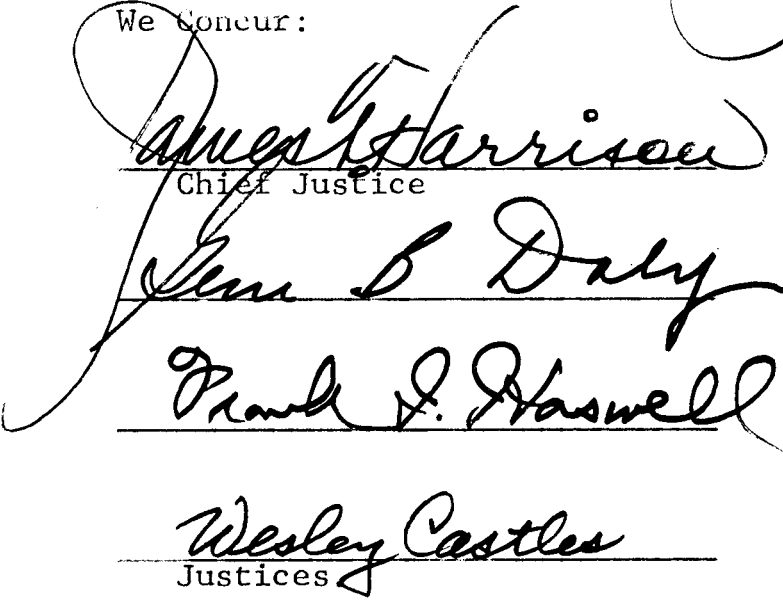 We Concur:
James T. Harrison
Chief Justice
Gene B Daly
Frank I. Haswell
Wesley Castles
Justices